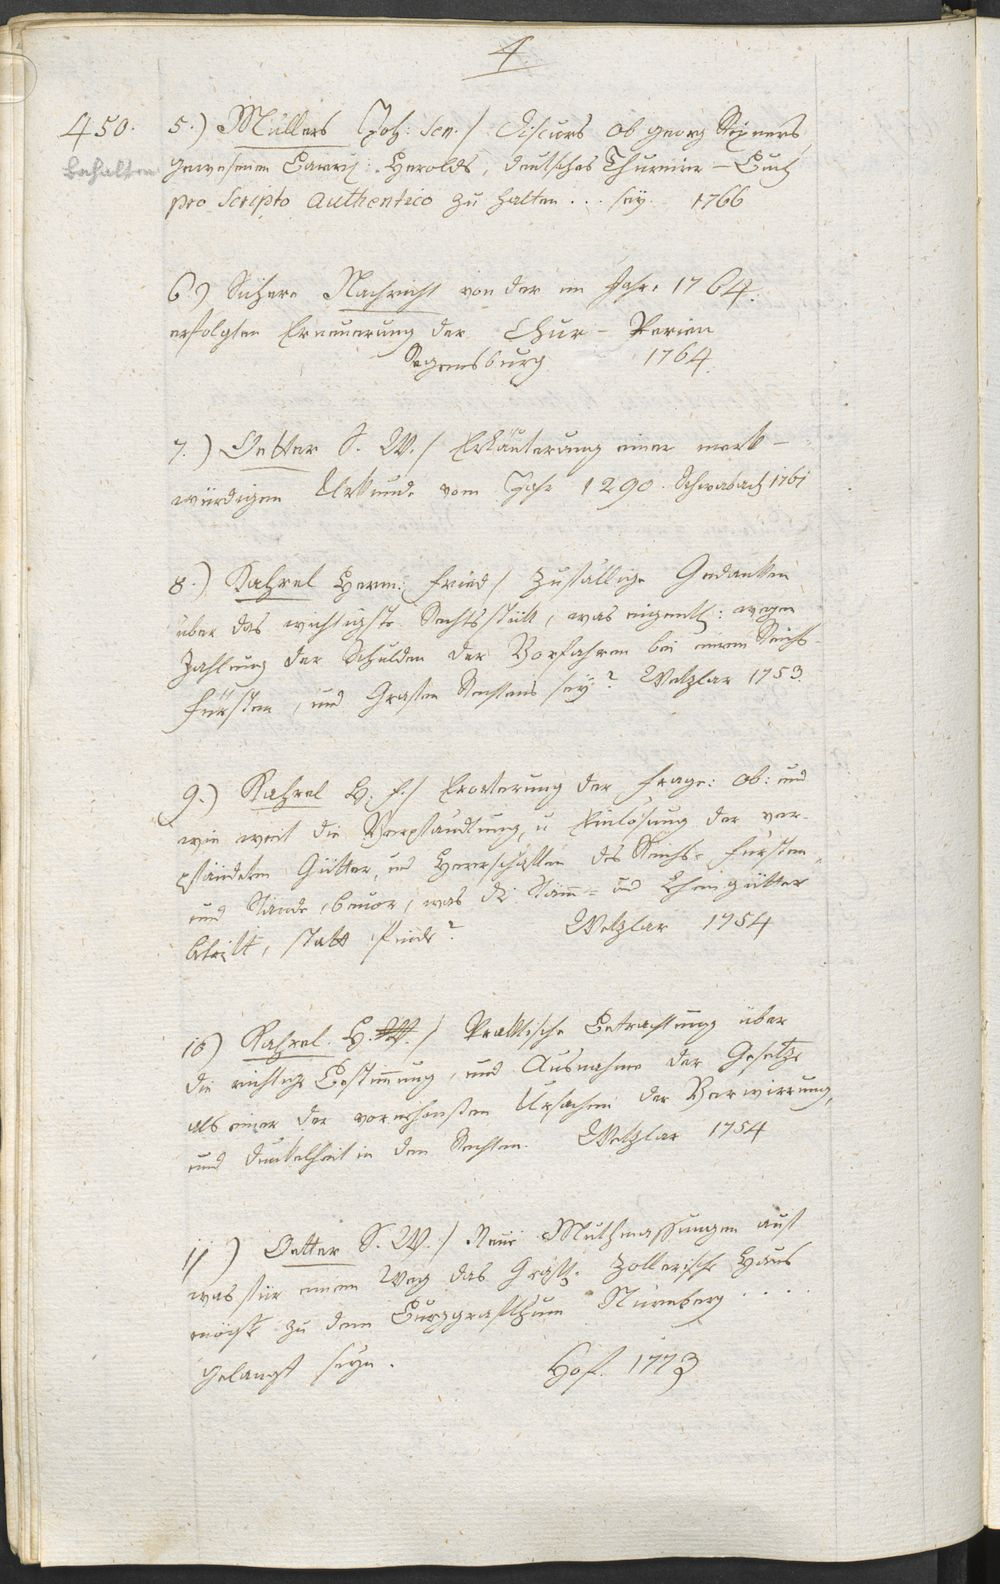 4
450. 5.) Müllers Joh: Sen./ Discurs ob Georg Rixners
behalten gewesenen Bairisch: Herolds, deutsches Thurnier-Buch
pro Scripto Authentico zu halten ... sey. 1766
6.) Sichere Nachricht von der im Jahre 1764.
erfolgten Erneuerung der Chur-Verein
Regensburg 1764.
7.) Oetter S. W./ Erläuterung einer merk-
würdigen Urkunde vom Jahr 1290. Schwabach 1761
8.) Kahrel Herm: Fried/ Zufällige Gedanken
über das wichtigste Rechtsstück, was eigentl: wegen
Zahlung der Schulden der Vorfahren bei einem Reichs-
fürsten, und Grafen Rechtens sey? Wetzlar 1753.
9.) Kahrel H. F./ Erörterung der Frage: ob: und
wie weit die Verpfändung, u Einlösung der ver-
pfändeten Gütter, und Herrschaften des Reichs-Fürsten,
und Stände, bevor, was die Stamm- und Lehengütter
betrift, statt finde? Wetzlar 1754
10) Kahrel. H. W./ Praktische Betrachtung über
die richtige Bestimmung, und Ausnahme der Gesetze
als einer der vornehmsten Ursachen der Verwirrung,
und Dunkelheit in den Rechten. Wetzlar 1754
11) Oetter S. W./ Neue Muthmassungen auf
was für einem Weg das Gräfl. Zollerische Haus
möchte zu dem Burggrafthum Nürnberg ....
gelangt seyn. Hof. 1773